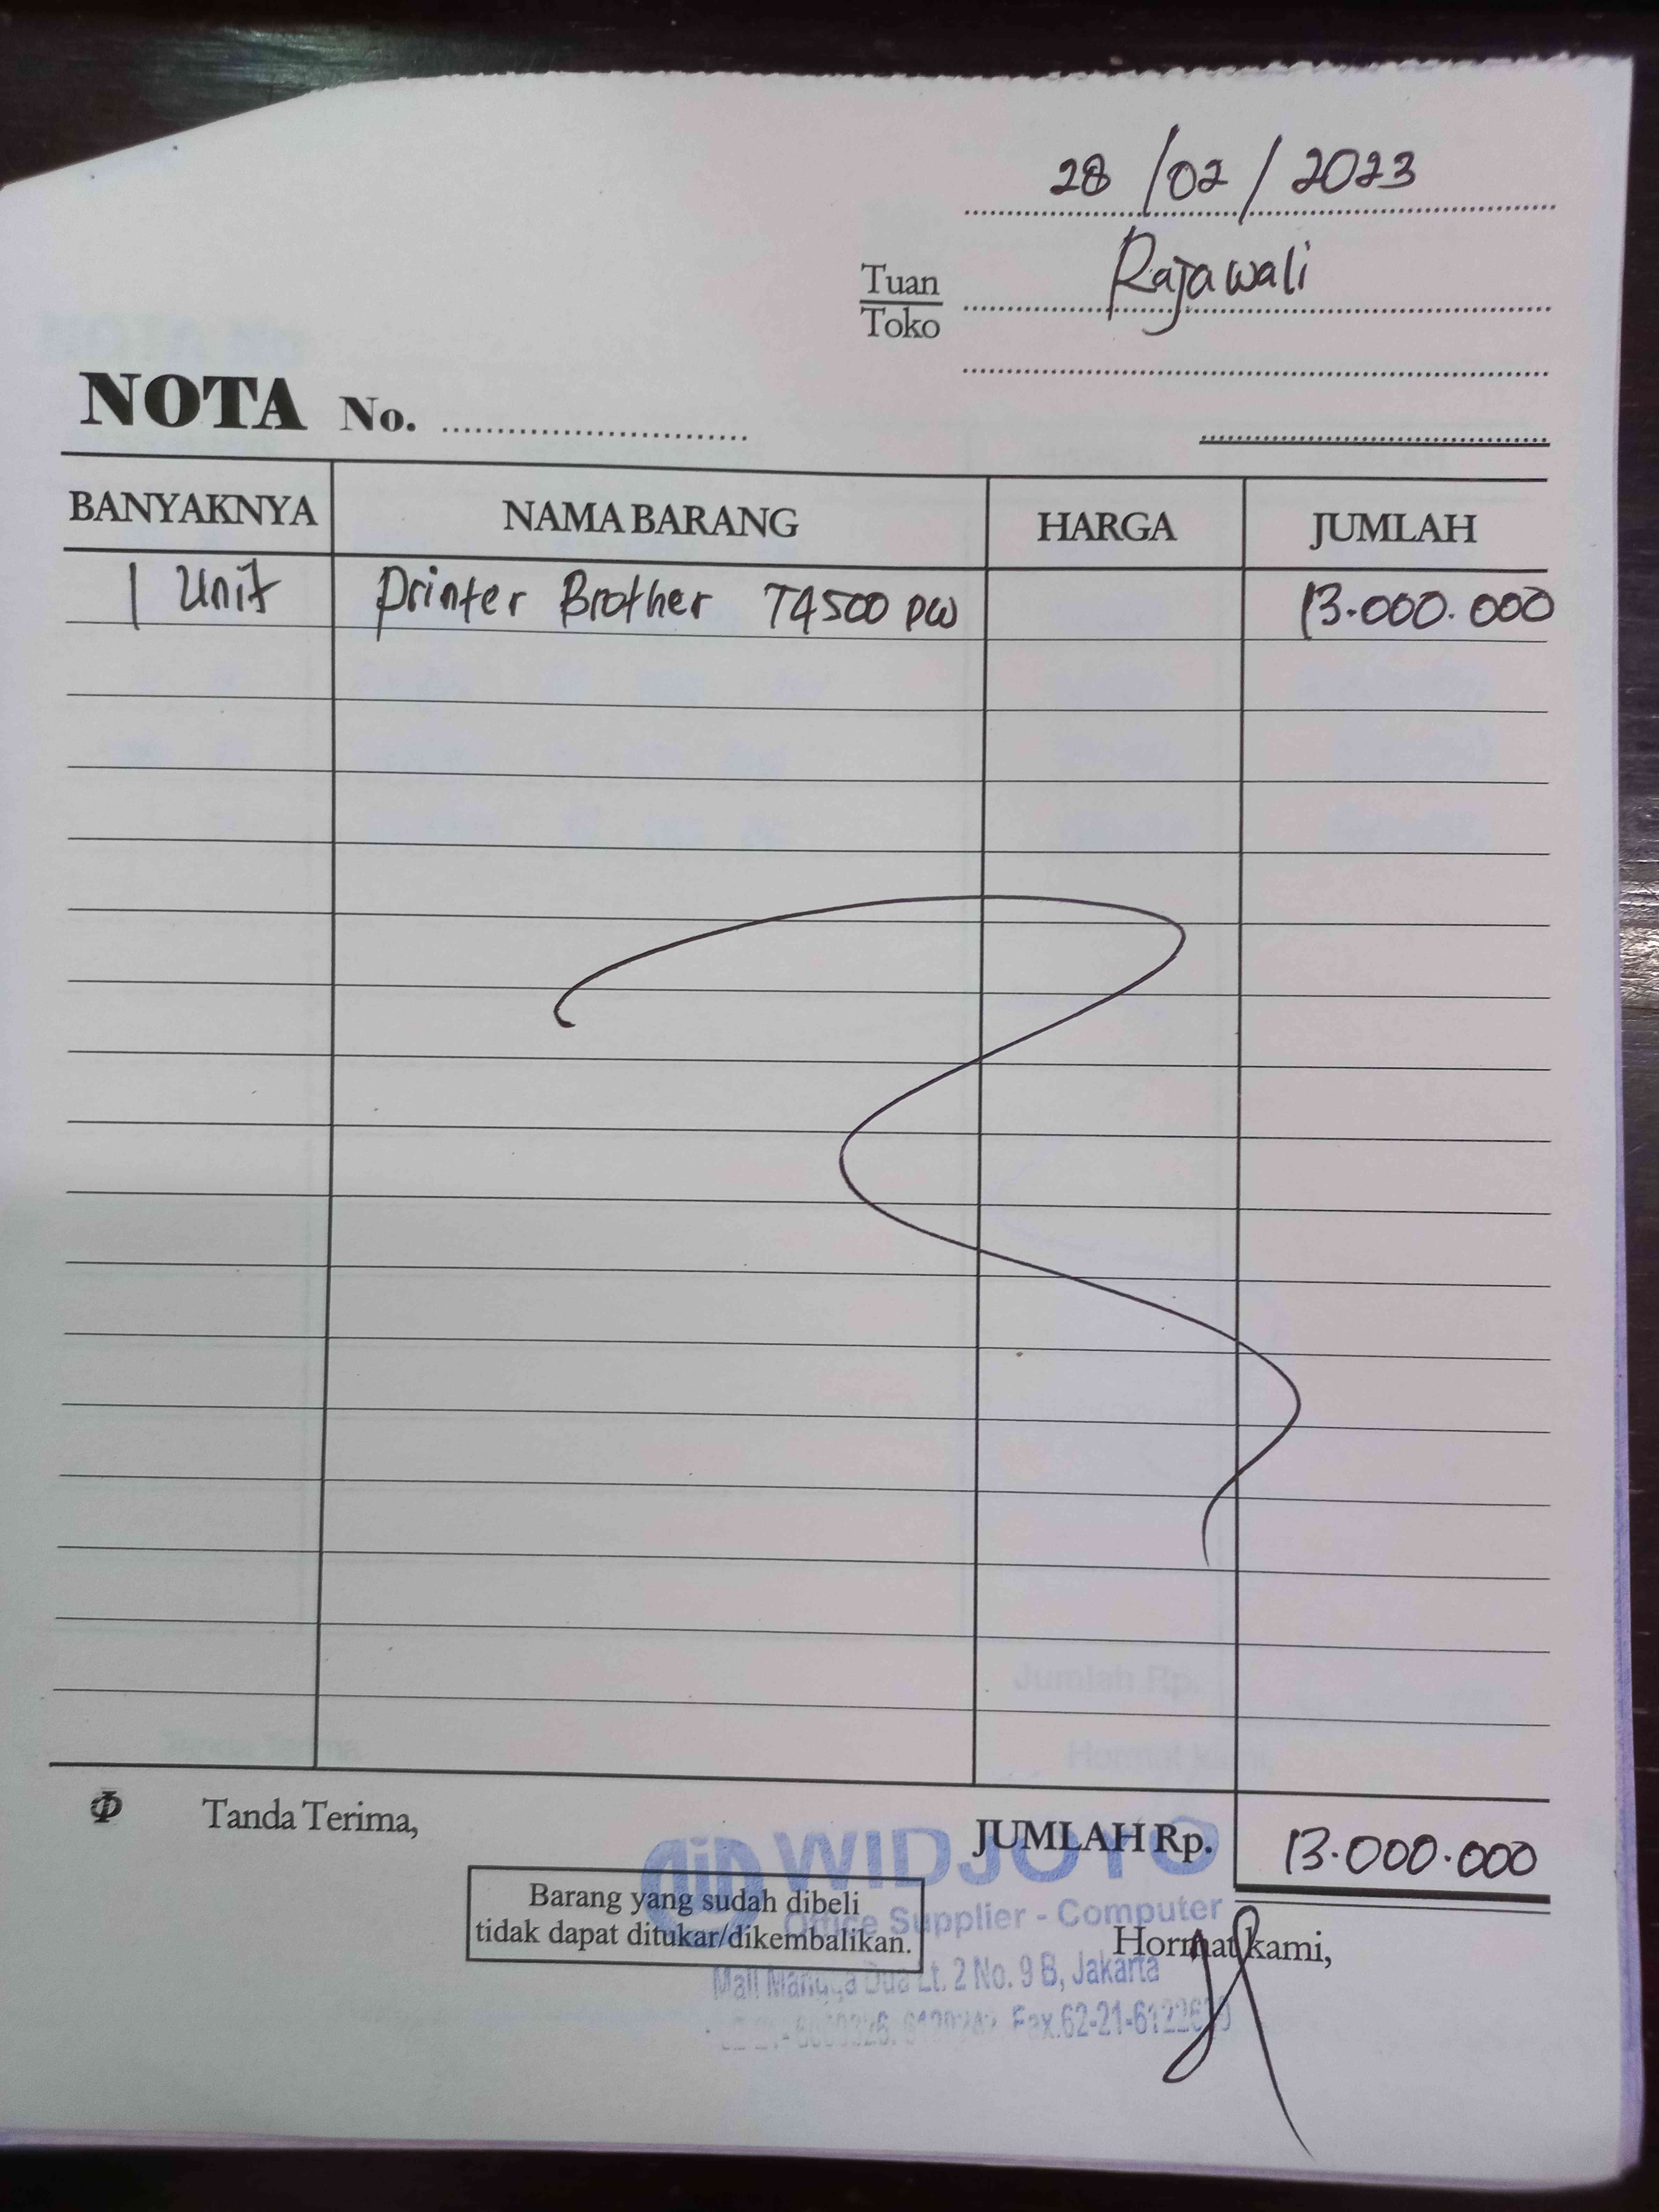 28/02/2023
Tuan
Toko
Rajawali
NOTA No.
BANYAKNYA NAMA BARANG HARGA JUMLAH
1 Unit Printer Brother T4500 DW 13.000.000
Tanda Terima,
JUMLAH Rp. 13.000.000
WIDJOYO
Barang yang sudah dibeli
tidak dapat ditukar/dikembalikan.
Office Supplier - Computer
Hormat kami,
Mall Mangga Dua Lt. 2 No. 9 B, Jakarta
Fax.62-21-